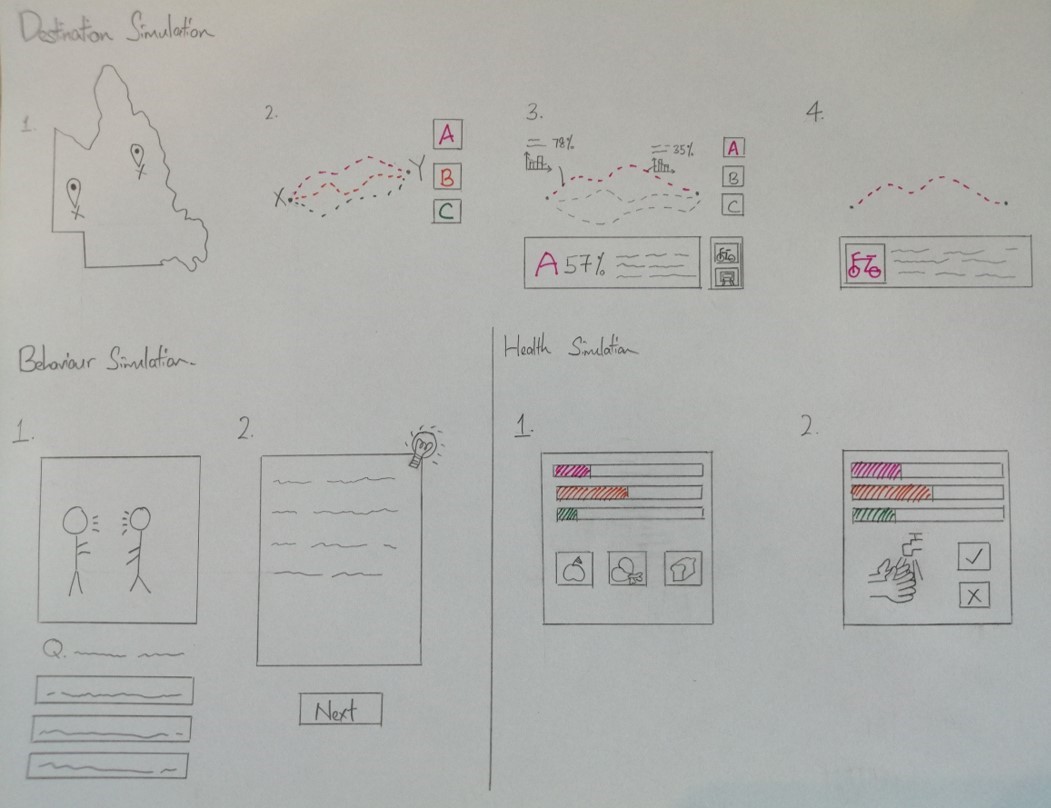 Destination Simulation
1.
X
X
2.
X
Y
A
B
C
3.
78%
35%
A
B
C
A 57%
4.
Behaviour Simulation.
1.
Q.
2.
Next
Health Simulation
1.
2.
X